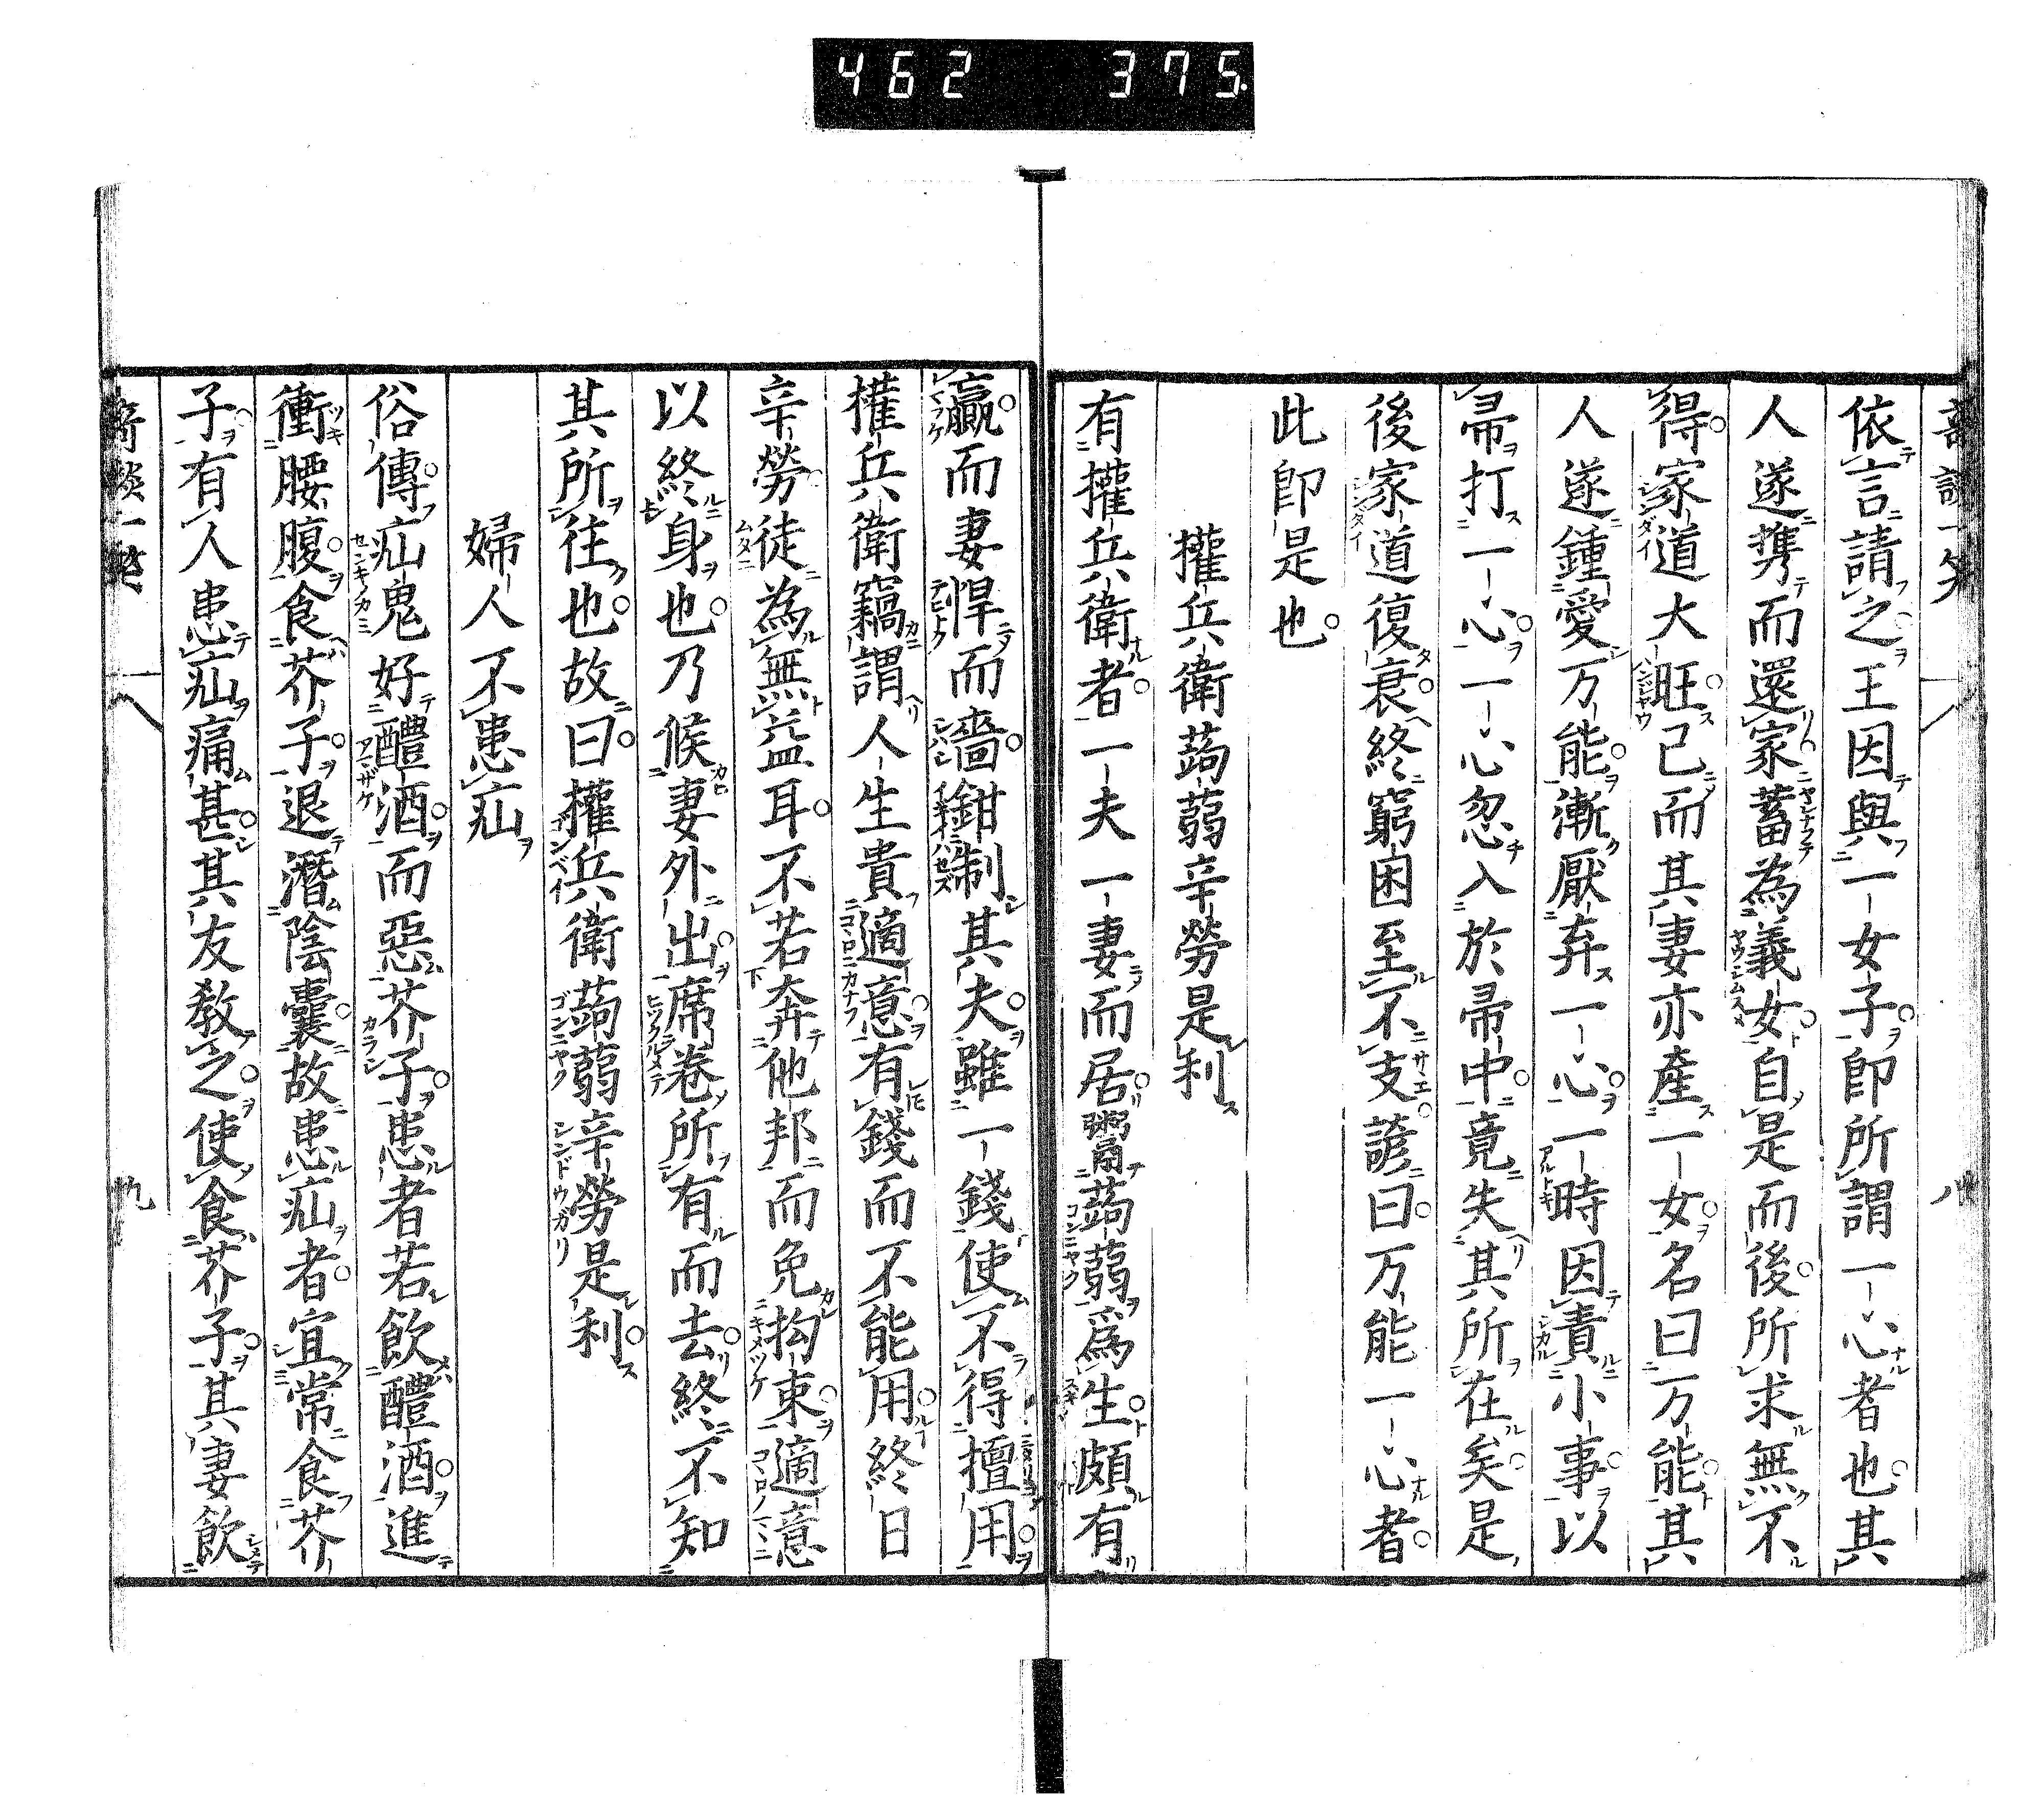 462 375
奇談一笑
八
依言請之王因與一女子即所謂一心者也其
人遂携而還家蓄為義女自是而後所求無不
得家道大旺已而其妻亦産一女名曰万能其
人遂鍾愛万能漸厭弃一心一時因責小事以
帚打一心一心忽入於帚中竟失其所在矣是
後家道復衰終窮困至不支諺曰万能一心者
此即是也
權兵衛蒟蒻辛勞是利
有權兵衛者一夫一妻而居鬻蒟蒻爲生頗有
贏而妻悍而嗇鉗制其夫雖一錢使不得擅用
權兵衛竊謂人生貴適意有錢而不能用終日
辛勞徒為無益耳不若奔他邦而免拘束適意
以終身也乃候妻外出席卷所有而去終不知
其所往也故曰權兵衛蒟蒻辛勞是利
婦人不患疝
俗傳疝鬼好醴酒而惡芥子患者若飲醴酒進
衝腰腹食芥子退潛陰囊故患疝者宜常食芥
子有人患疝痛甚其友教之使食芥子其妻飲
奇談一笑
九